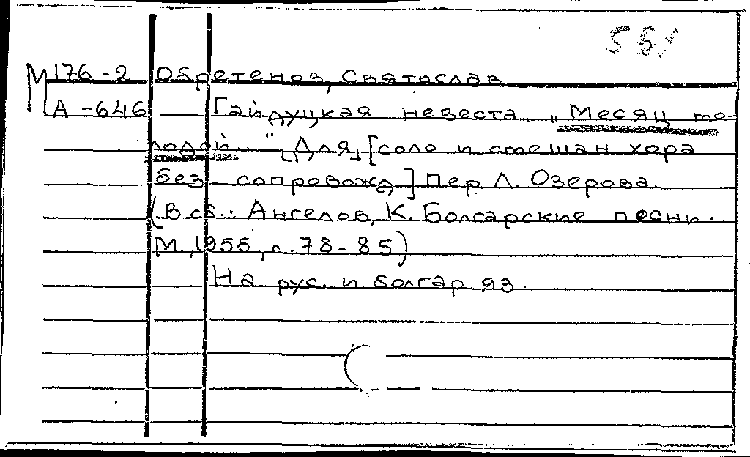 551
М176-2 Обретенов, Святослав
А-646 Гайдуцкая невеста. „Месяц мо-
лодой..." Для [соло и смешан хора
без сопровожд.] Пер Л. Озерова.
(В сб.: Ангелов, К. Болгарские песни.
М, 1955, с. 78-85)
На рус. и болгар яз.